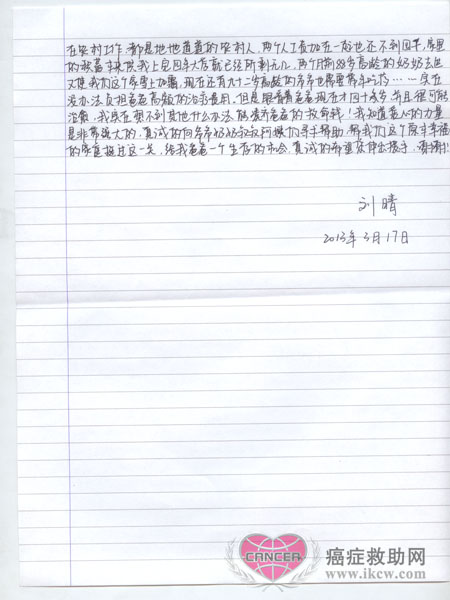 在农村工作,都是地地道道的农村人,两个人工资加在一起也还不到四千,家里
的积蓄在供我上完四年大学就已经所剩无几,两个月前88岁高龄的奶奶去世
又使我们这个家雪上加霜,现在还有九十二岁高龄的爷爷也需要常年吃药……实在
没办法负担爸爸高额的治疗费用,但是眼看着爸爸现在才四十多岁并且很可能
治愈,我实在想不到其他什么办法能凑齐爸爸的救命钱!我知道众人的力量
是非常强大的,真诚的向爷爷奶奶叔叔阿姨们寻求帮助,帮我们这个原本幸福
的家庭挺过这一关,给我爸爸一个生存的机会,真诚的希望您伸出援手,谢谢!
刘晴
2013年3月17日
CANCER
癌症救助网
www.ikcw.com